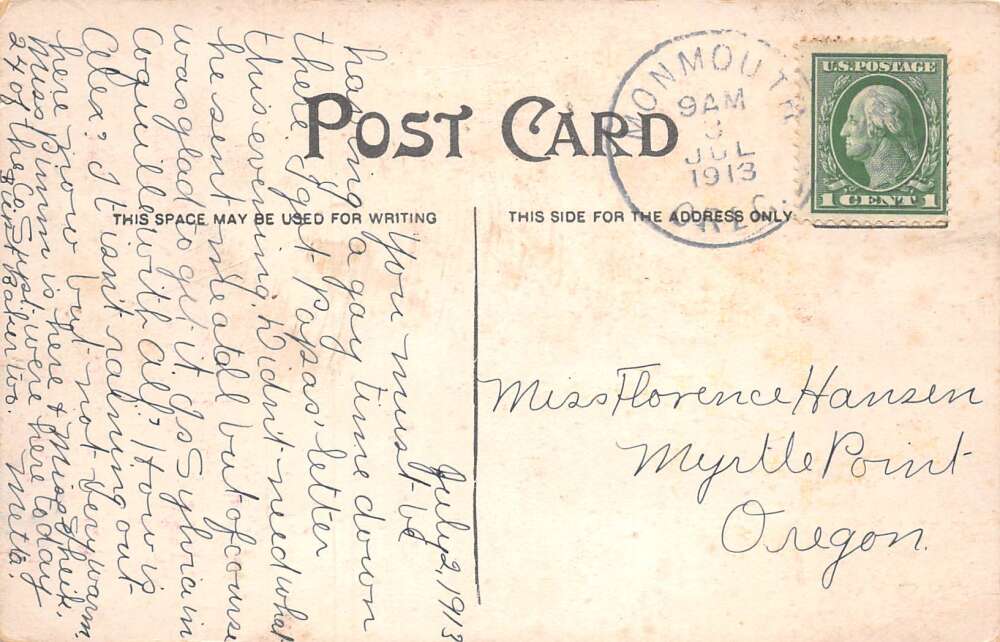 POST CARD
THIS SPACE MAY BE USED FOR WRITING
THIS SIDE FOR THE ADDRESS ONLY
MONMOUTH
9 AM
3
JUL
1913
OREG.
U.S. POSTAGE
1 CENT 1
July 2, 1913
You must be
having a gay time down
there. I got Papas' letter
this evening. Didn't need what
he sent me at all but of course
was glad to get it. Is Sylvia in
Coquille with al? How is
Alex? It isn't raining out
here now but not very warm.
Miss Binnn is here & Miss
24 of the Co. Supt. were here today
Meta.
Miss Florence Hansen
Myrtle Point
Oregon.